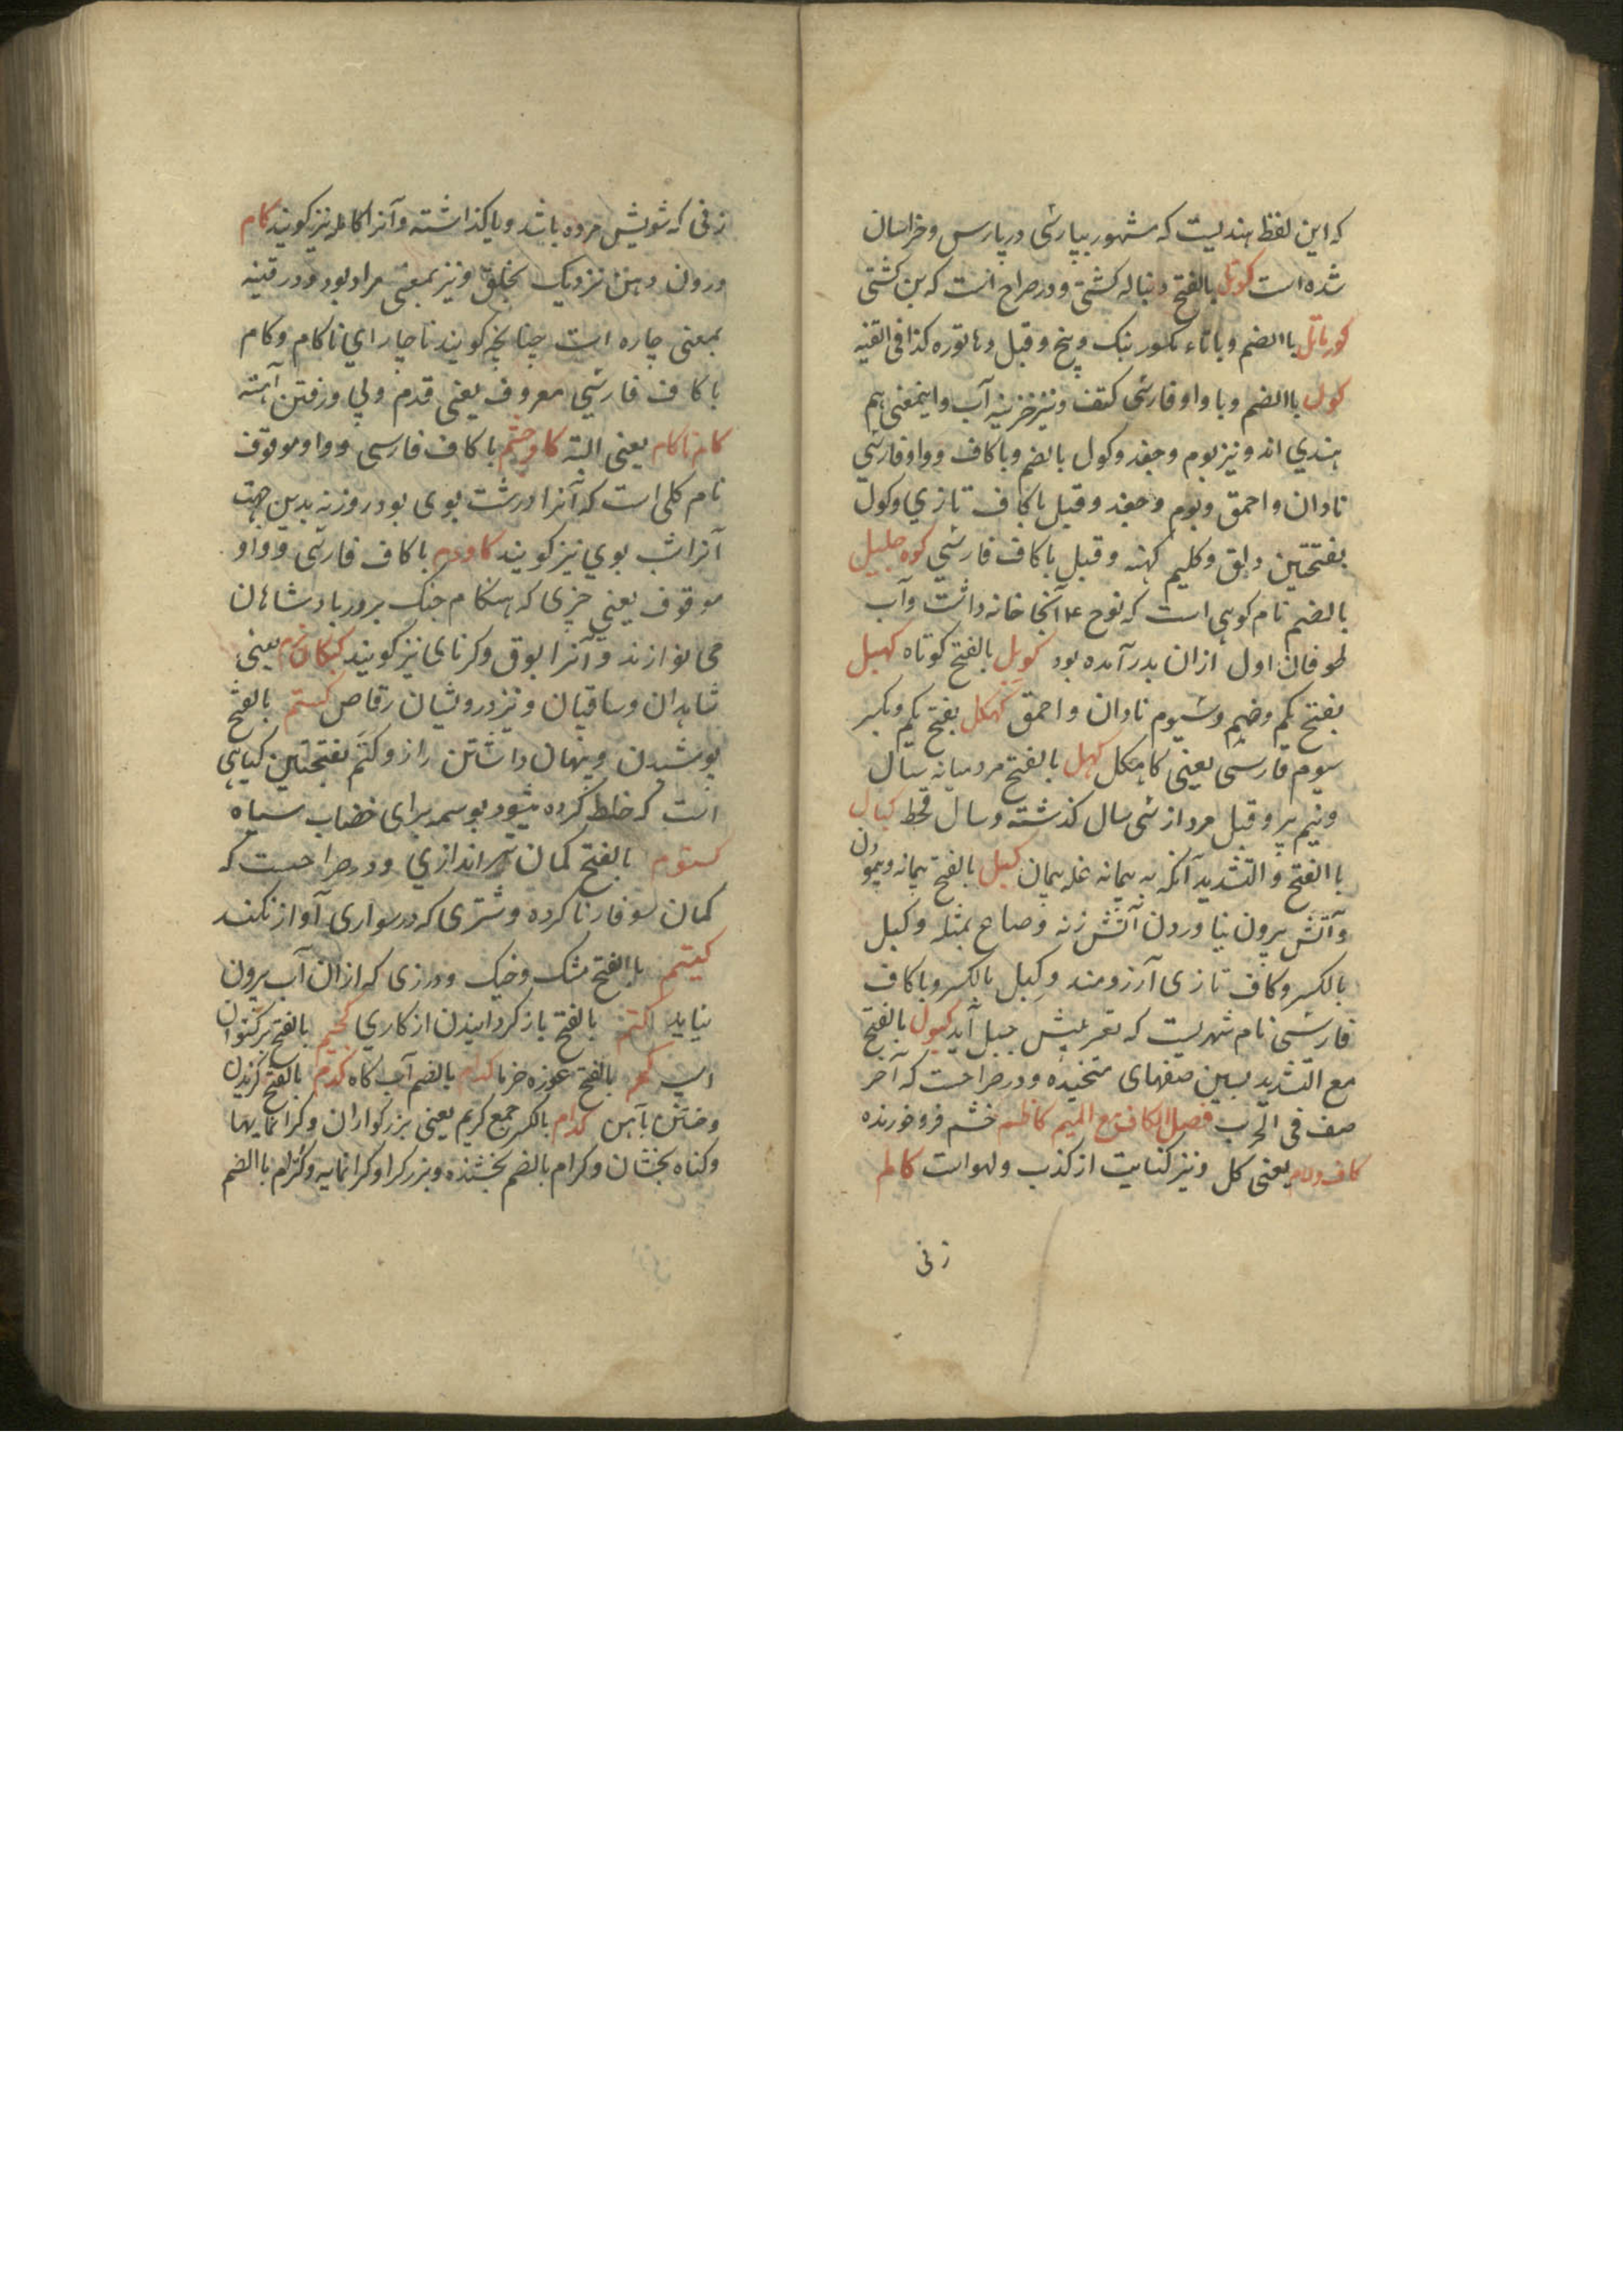 که این لفظ هندیست که مشهور بپارسی در پارس و خراسان
شده است کوتل بالفتح دنباله کشتی و در صراح است که بن کشتی
باالضم و باتاء مکسور بنک و بنج و قیل دهاتوره کذا فی القنیه
کول باالضم و باواو فارسی کتف و نیز خزینه آب و اینمعنی هم
هندی اند و نیز بوم و جغد و کول بالضم و باکاف و واو فارسی
نادان و احمق و بوم و جغد و قیل باکاف تازی و کول
بفتحتین دلق و کلیم کهنه و قیل باکاف فارسی کوه جلیل
بالضم نام کوهی است که نوح ۴ آنجا خانه داشت و آب
طوفان اول ازان بدر آمده بود کویل بالفتح کوتاه کهبل
بفتح یکم و ضم و سیوم نادان و احمق کهکل بفتح یکم و بکسر
سیوم فارسی یعنی کاهکل کهل بالفتح مرد میانه سال
و نیم پیر و قیل مرد از سی سال کذشته و سال قحط کیال
باالفتح و التشدید آنکه به پیمانه غله پیمان کیل بالفتح پیمانه و پیمودن
و آتش بیرون نیاوردن آتش زنه و صاع بمثله و کیل
بالکسر و کاف تازی آرزومند و کیل بالکسر و باکاف
فارسی نام شهریست که تعریبش جیل آید کیول بالفتح
مع التشدید پسین صفهای و در صراحست که آخر
صف فی الحرب فصل الکاف مع المیم کاظم خشم فرو خورنده
کاف و لام یعنی کل و نیز کنایت از کذب و لهو است کالم
زنی
زنی که شویش مرده باشد و یا کذاشته و آنرا کالمه نیز کویند کام
درون دهن نزدیک بحلق و نیز بمعنی مراد بود و در قنیه
بمعنی چاره است چنانچه کویند ناچار ای ناکام و کام
باکاف فارسی معروف یعنی قدم و پی و رفتن آهسته
کام ناکام یعنی البته کاوچشم باکاف فارسی و واو موقوف
نام کلی است که آنرا در شب بوی بود روز نه بدین جهت
آنرا شب بوی نیز کویند کاودم باکاف فارسی و واو
موقوف یعنی چیزی که هنکام جنک بر در بادشاهان
می نوازند و آنرا بوق و کرنای نیز کویند کبکان بزم یعنی
شاهدان و ساقیان و نیز درویشان رقاص کتم بالفتح
پوشیدن و پنهان داشتن راز و کتم بفتحتین کیاهی
است که خلط کرده میشود بوسمه برای خضاب سیاه
کتوم بالفتح کمان تیراندازی و در صراحست که
کمان سوفار ناکرده و شتری که در سواری آواز نکند
کیتم باالفتح مشک و خیک و درازی که ازان آب بیرون
نیاید کثم بالفتح باز کردانیدن از کاری کجیم بالفتح برکستوان
اسپ بالفتح غوزه خرما کدام بالضم آب کاه کدم بالفتح کزیدن
و خستن بآهن کرام بالکسر جمع کریم یعنی بزرکواران و کرانمایها
و کناه بخشان و کرام بالضم بخشنده و بزرکوار و کرانمایه و کرام باالضم